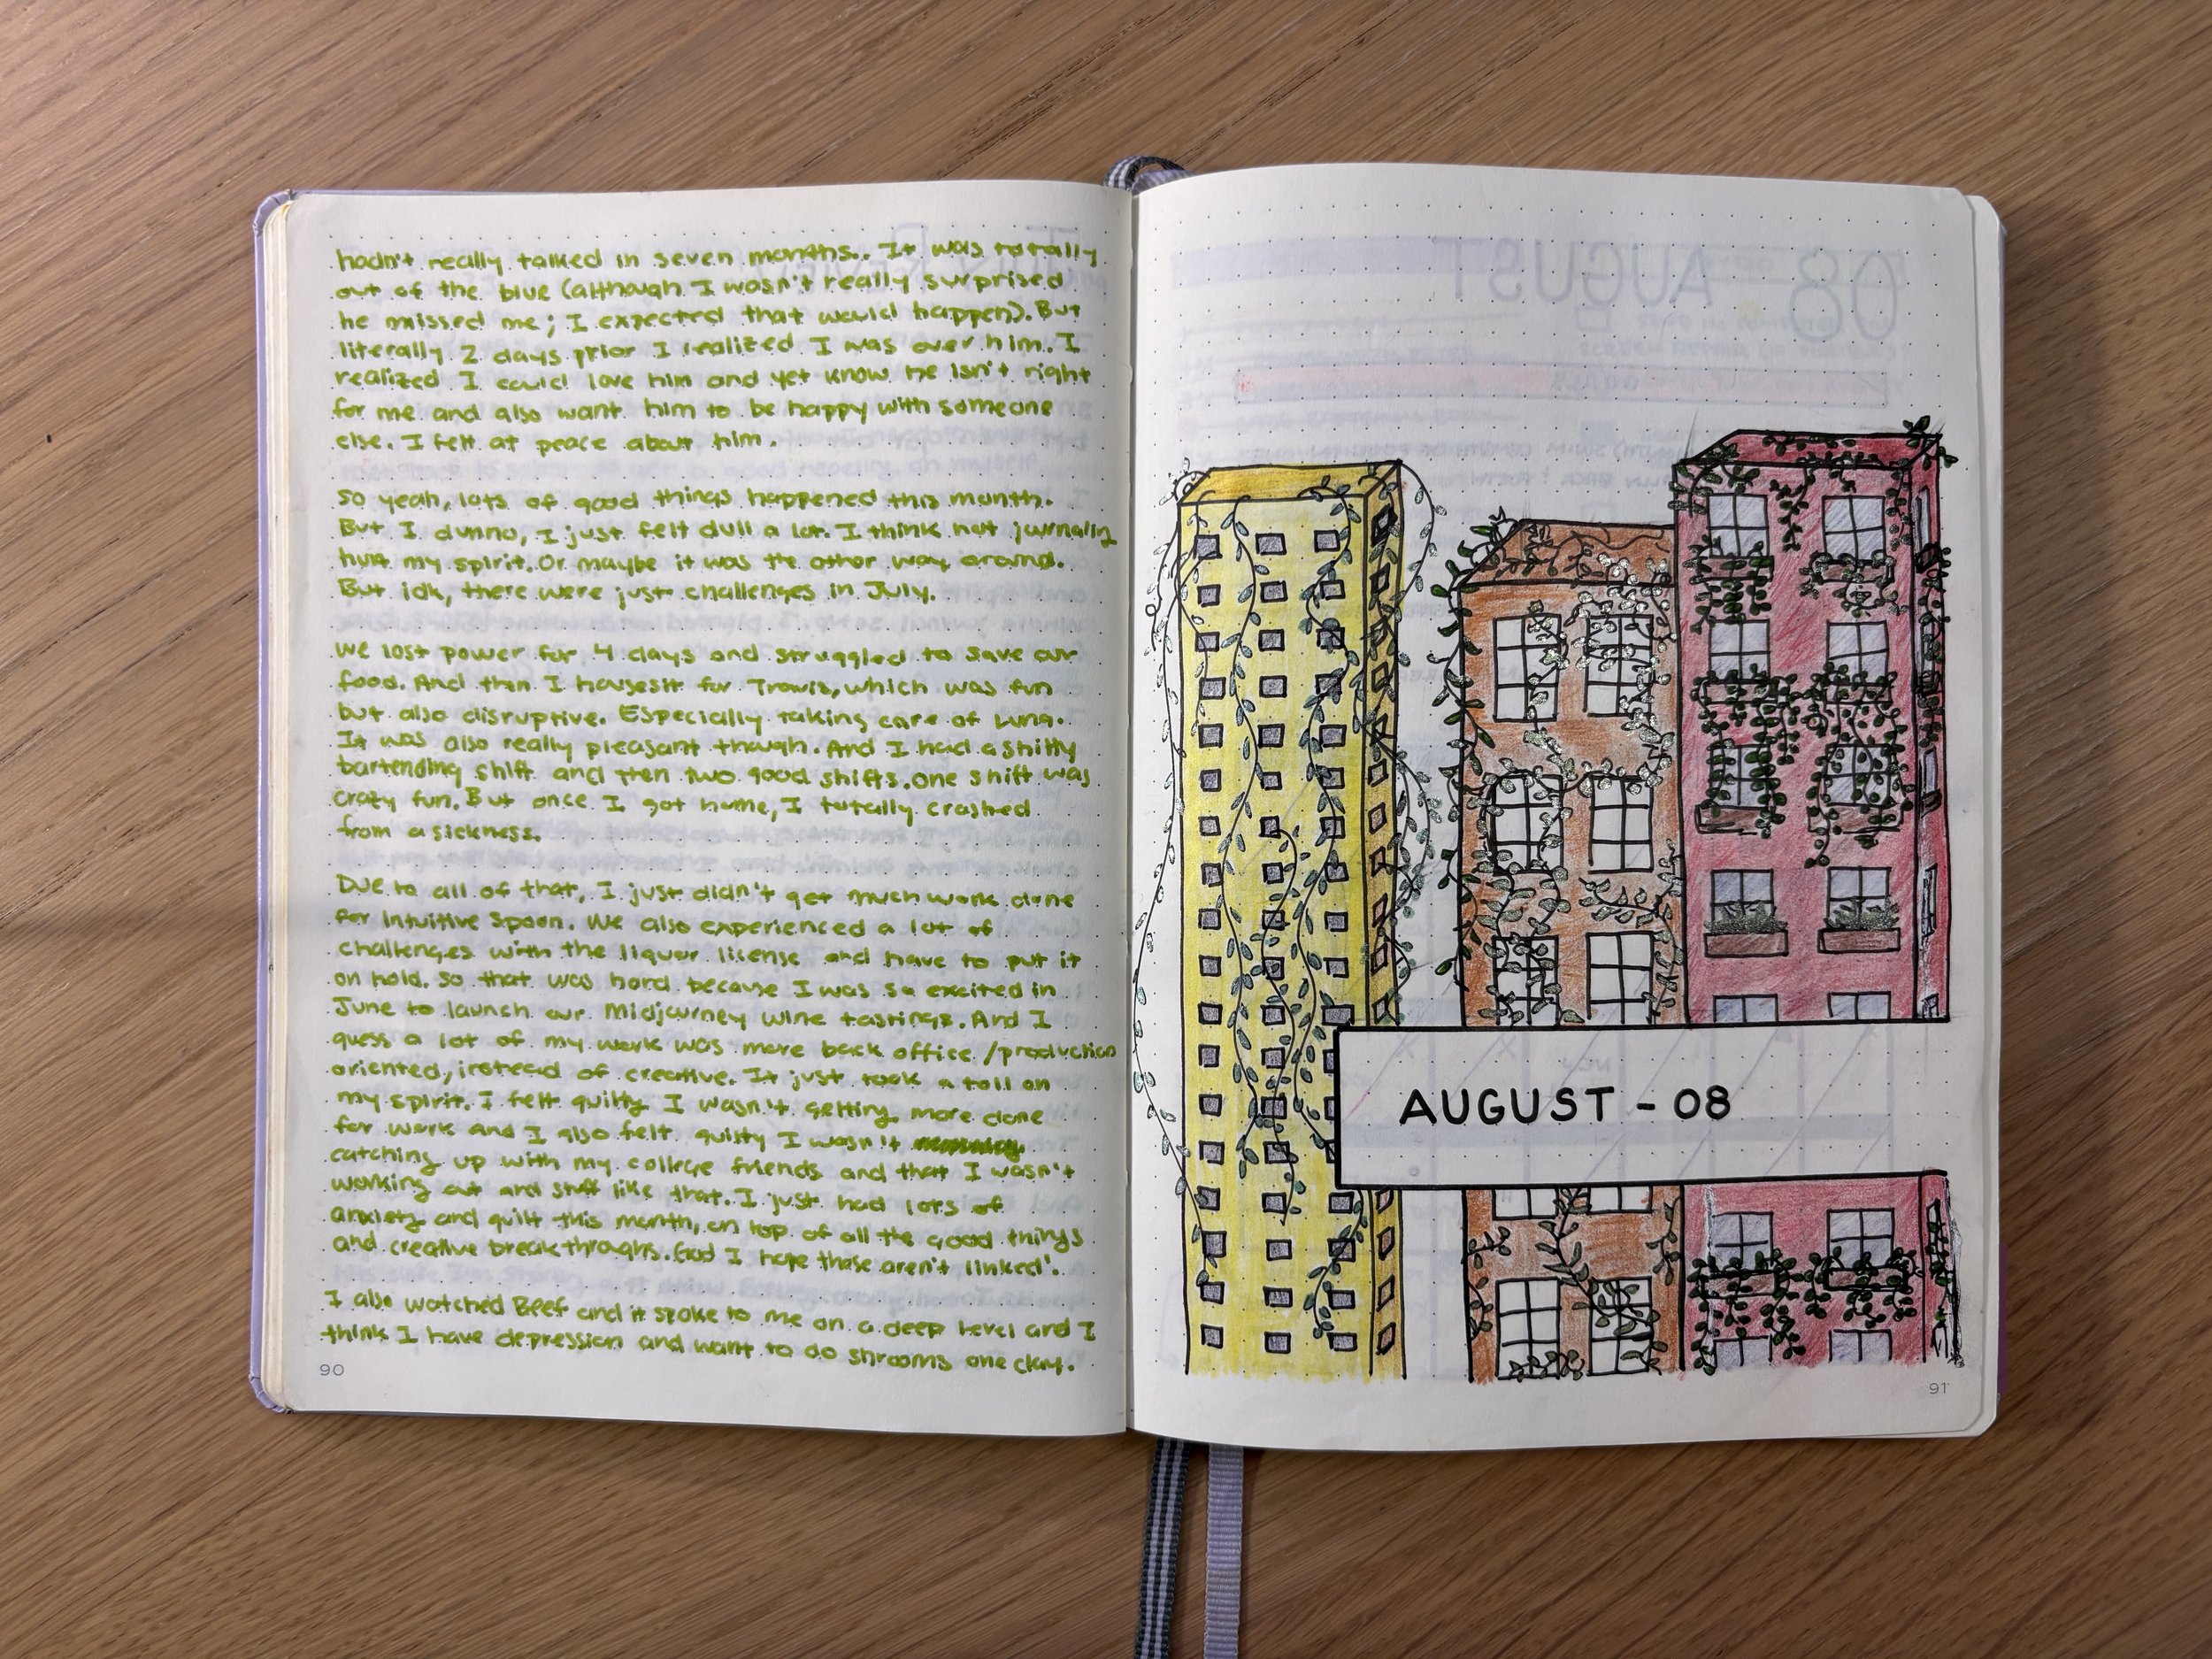 hadn't really talked in seven months. It was totally
out of the blue (although I wasn't really surprised
he missed me; I expected that would happen). But
literally 2 days prior I realized I was over him. I
realized I could love him and yet know he isn't right
for me and also want him to be happy with someone
else. I felt at peace about him.
So yeah, lots of good things happened this month.
But I dunno, I just felt dull a lot. I think not journaling
hurt my spirit. Or maybe it was the other way around.
But idk, there were just challenges in July.
We lost power for 4 days and struggled to save our
food. And then I housesit for Travis, which was fun
but also disruptive. Especially taking care of Luna.
It was also really pleasant though. And I had a shitty
bartending shift and then two good shifts. One shift was
crazy fun. But once I got home, I totally crashed
from a sickness.
Due to all of that, I just didn't get much work done
for Intuitive Spoon. We also experienced a lot of
challenges with the liquor license and have to put it
on hold. So that was hard because I was so excited in
June to launch our Midjourney wine tastings. And I
guess a lot of my work was more back office/production
oriented, instead of creative. It just took a toll on
my spirit. I felt guilty I wasn't getting more done
for work and I also felt guilty I wasn't
catching up with my college friends and that I wasn't
working out and stuff like that. I just had lots of
anxiety and guilt this month, on top of all the good things
and creative breakthroughs. God I hope those aren't linked!
I also watched Beef and it spoke to me on a deep level and I
think I have depression and want to do shrooms one day.
90
AUGUST - 08
91